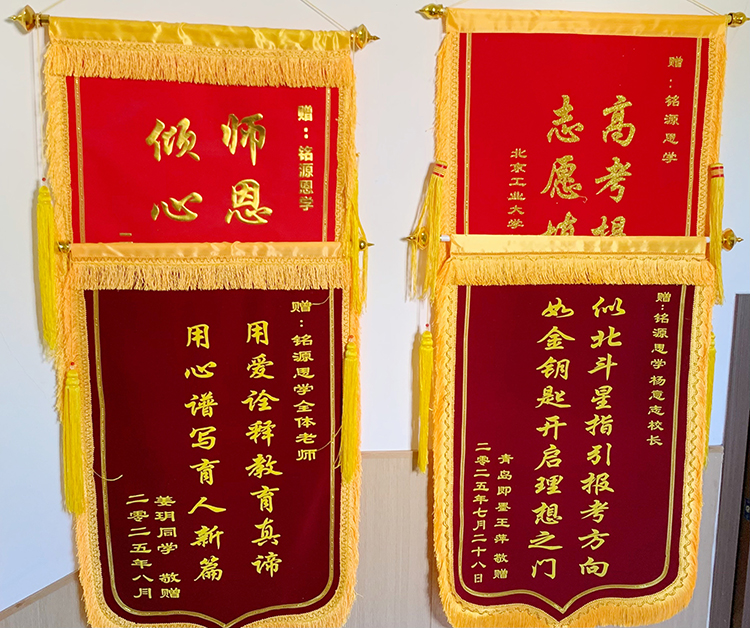 赠：铭源恩学
师恩
倾心
赠：铭源恩学全体老师
用爱诠释教育真谛
用心谱写育人新篇
姜玥同学 敬赠
二零二五年八月
赠：铭源恩学
高考
志愿
北京工业大学
赠：铭源恩学杨意志校长
似北斗星指引报考方向
如金钥匙开启理想之门
青岛即墨王萍 敬赠
二零二五年七月二十八日